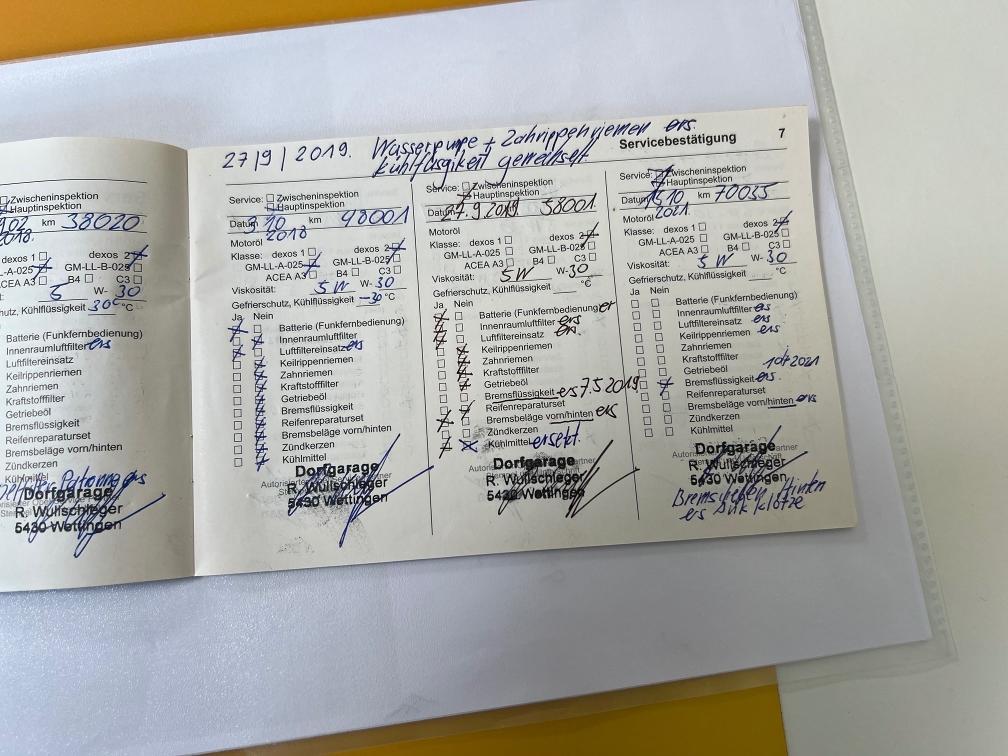 27/9/2019. Wasserpumpe + Zahnrippenriemen ers.
Kühlflüsigkeit gewechselt
Servicebestätigung 7
Zwischeninspektion
Hauptinspektion
km 38020
2018.
dexos 1 dexos 2
LL-A-025 GM-LL-B-025
ACEA A3 B4 C3
5 W- 30
chutz, Kühlflüssigkeit 30 °C
Batterie (Funkfernbedienung)
Innenraumluftfilter ers
Luftfiltereinsatz
Keilrippenriemen
Zahnriemen
Kraftstofffilter
Getriebeöl
Bremsflüssigkeit
Reifenreparaturset
Bremsbeläge vorn/hinten
Zündkerzen
Kühlmittel
Dorfgarage
R. Wullschleger
5430 Wettingen
Service: Zwischeninspektion
Hauptinspektion
Datum 3.10 km 48001
2018
Motoröl
Klasse: dexos 1 dexos 2
GM-LL-A-025 GM-LL-B-025
ACEA A3 B4 C3
Viskosität: 5 W W- 30
Gefrierschutz, Kühlflüssigkeit -30 °C
Ja Nein
Batterie (Funkfernbedienung)
Innenraumluftfilter
Luftfiltereinsatz ers
Keilrippenriemen
Zahnriemen
Kraftstofffilter
Getriebeöl
Bremsflüssigkeit
Reifenreparaturset
Bremsbeläge vorn/hinten
Zündkerzen
Kühlmittel
Dorfgarage
R. Wullschleger
5430 Wettingen
Service: Zwischeninspektion
Hauptinspektion
Datum 27.9.2019 58001
Motoröl
Klasse: dexos 1 dexos 2
GM-LL-A-025 GM-LL-B-025
ACEA A3 B4 C3
Viskosität: 5 W W- 30
Gefrierschutz, Kühlflüssigkeit °C
Ja Nein
Batterie (Funkfernbedienung) er
Innenraumluftfilter ers
Luftfiltereinsatz ers
Keilrippenriemen
Zahnriemen
Kraftstofffilter
Getriebeöl
Bremsflüssigkeit ers 7.5 2019
Reifenreparaturset
Bremsbeläge vorn/hinten ers
Zündkerzen
Kühlmittel ersetzt.
Dorfgarage
R. Wullschleger
5430 Wettingen
Service: Zwischeninspektion
Hauptinspektion
Datum 15 10 km 70055
2021.
Motoröl
Klasse: dexos 1 dexos 2
GM-LL-A-025 GM-LL-B-025
ACEA A3 B4 C3
Viskosität: 5 W W- 30
Gefrierschutz, Kühlflüssigkeit °C
Ja Nein
Batterie (Funkfernbedienung)
Innenraumluftfilter ers
Luftfiltereinsatz ers
Keilrippenriemen ers
Zahnriemen
Kraftstofffilter
Getriebeöl 1 okt 2021
Bremsflüssigkeit ers.
Reifenreparaturset
Bremsbeläge vorn/hinten ers
Zündkerzen
Kühlmittel
Dorfgarage
R. Wullschleger
5430 Wettingen
Bremsscheiben hinten
ers klötze